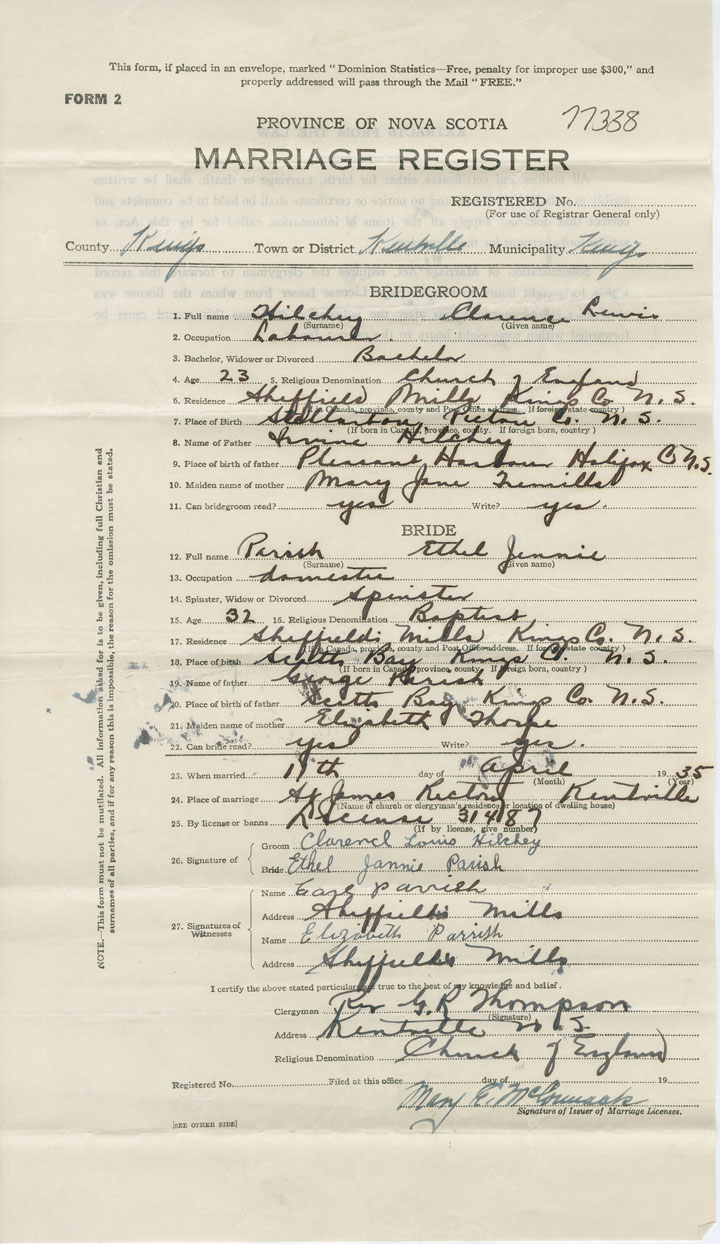 This form, if placed in an envelope, marked "Dominion Statistics—Free, penalty for improper use $300," and
properly addressed will pass through the Mail "FREE."
FORM 2
PROVINCE OF NOVA SCOTIA 77338
MARRIAGE REGISTER
REGISTERED No.
(For use of Registrar General only)
County Kings Town or District Kentville Municipality Kings
BRIDEGROOM
1. Full name Hilchey Clarence Lewis
(Surname) (Given name)
2. Occupation Labourer.
3. Bachelor, Widower or Divorced Bachelor
4. Age 23 5. Religious Denomination Church of England
6. Residence Sheffield Mills Kings Co N.S.
(If in Canada, province, county and Post Office address. If foreign state country)
7. Place of Birth Stellarton Pictou Co. N.S.
(If born in Canada, province, county. If foreign born, country)
8. Name of Father Irvine Hilchey
9. Place of birth of father Pleasant Harbour Halifax Co N.S.
10. Maiden name of mother Mary Jane
11. Can bridegroom read? yes Write? yes.
BRIDE
12. Full name Parish Ethel Jennie
(Surname) (Given name)
13. Occupation domestic
14. Spinster, Widow or Divorced Spinster
15. Age 32 16. Religious Denomination Baptist
17. Residence Sheffields Mills Kings Co. N.S.
(If in Canada, province, county and Post Office address. If foreign state country)
18. Place of birth Scotts Bay Kings Co. N.S.
(If born in Canada, province, county. If foreign born, country)
19. Name of father George Parish
20. Place of birth of father Scotts Bay Kings Co. N.S.
21. Maiden name of mother Elizabeth Thorpe
22. Can bride read? yes Write? yes.
23. When married 17th day of April 1935
(Month) (Year)
24. Place of marriage St James Rectory Kentville
(Name of church or clergyman's residence or location of dwelling house)
25. By license or banns License 31487
(If by license, give number)
26. Signature of
Groom Clarence Louis Hilchey
Bride Ethel Jannie Parish
27. Signatures of Witnesses
Name Earl Parrish
Address Sheffields Mills
Name Elizabeth Parrish
Address Sheffields Mills
I certify the above stated particulars are true to the best of my knowledge and belief.
Clergyman Rev G.R Thompson
(Signature)
Address Kentville N.S.
Religious Denomination Church of England
Registered No. Filed at this office day of 19
Mary E. McCormack
Signature of Issuer of Marriage Licenses.
[SEE OTHER SIDE]
NOTE.—This form must not be mutilated. All information asked for is to be given, including full Christian and
surnames of all parties, and if for any reason this is impossible, the reason for the omission must be stated.